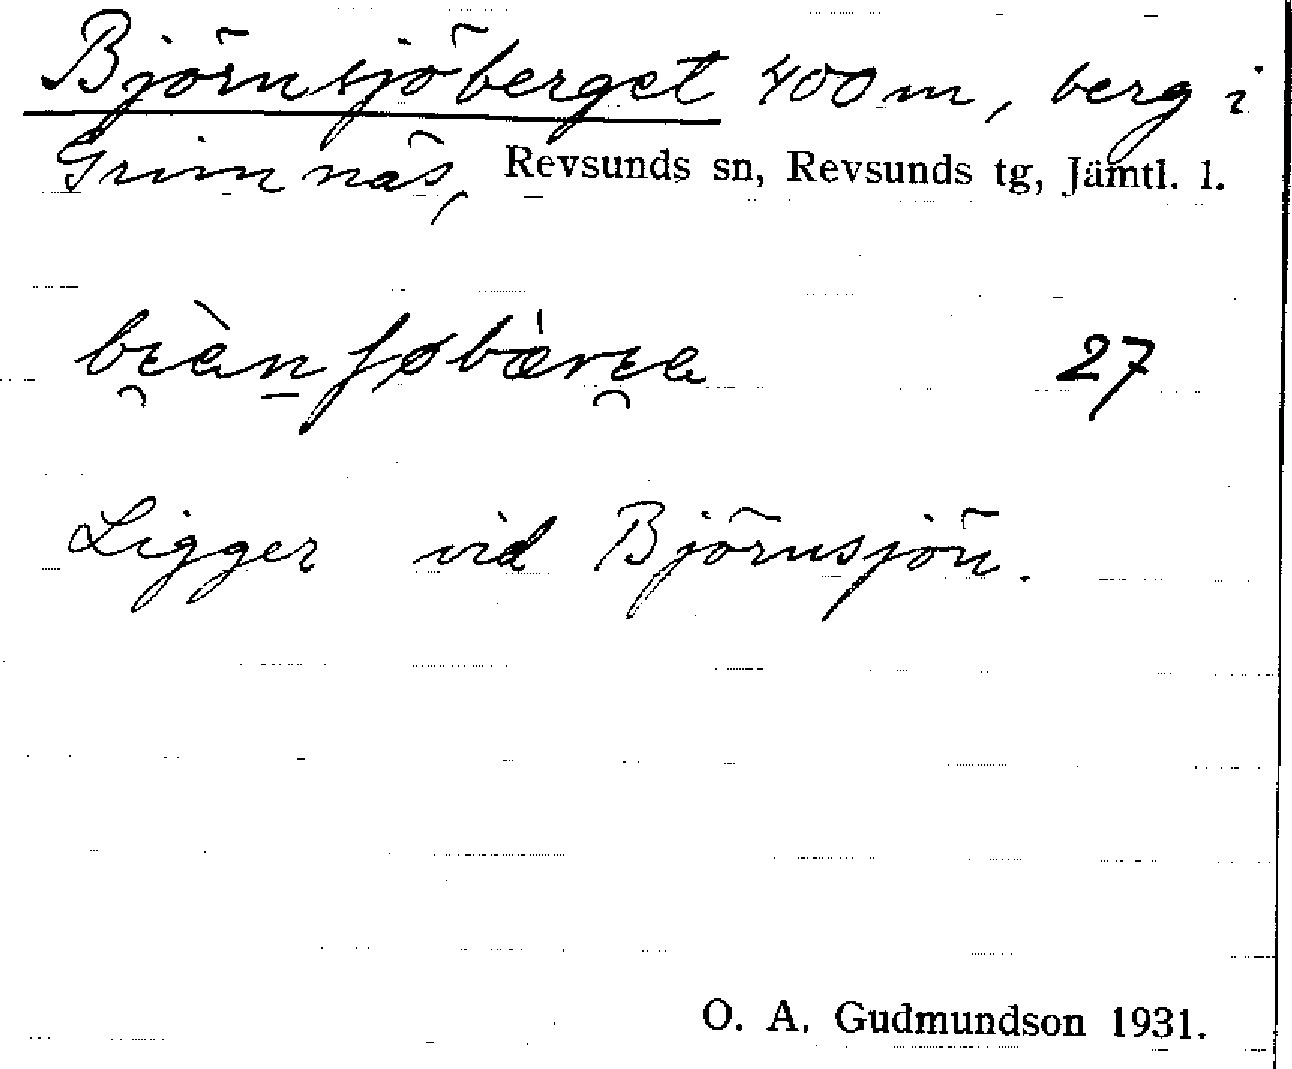 Björnsjöberget 400 m, berg i
Grimnäs, Revsunds sn, Revsunds tg, Jämtl. l.
27
Ligger vid Björnsjön.
O. A. Gudmundson 1931.